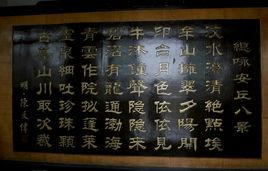 總咏安丘八景
汶水澄清絕點埃
牟山擁翠夕陽開
印台月色依依見
牛沐鐘聲隐隐來
沼有龍通渤海
青雲作院擬蓬萊
靈泉細吐珍珠顆
古山川取次裁
明 陳文